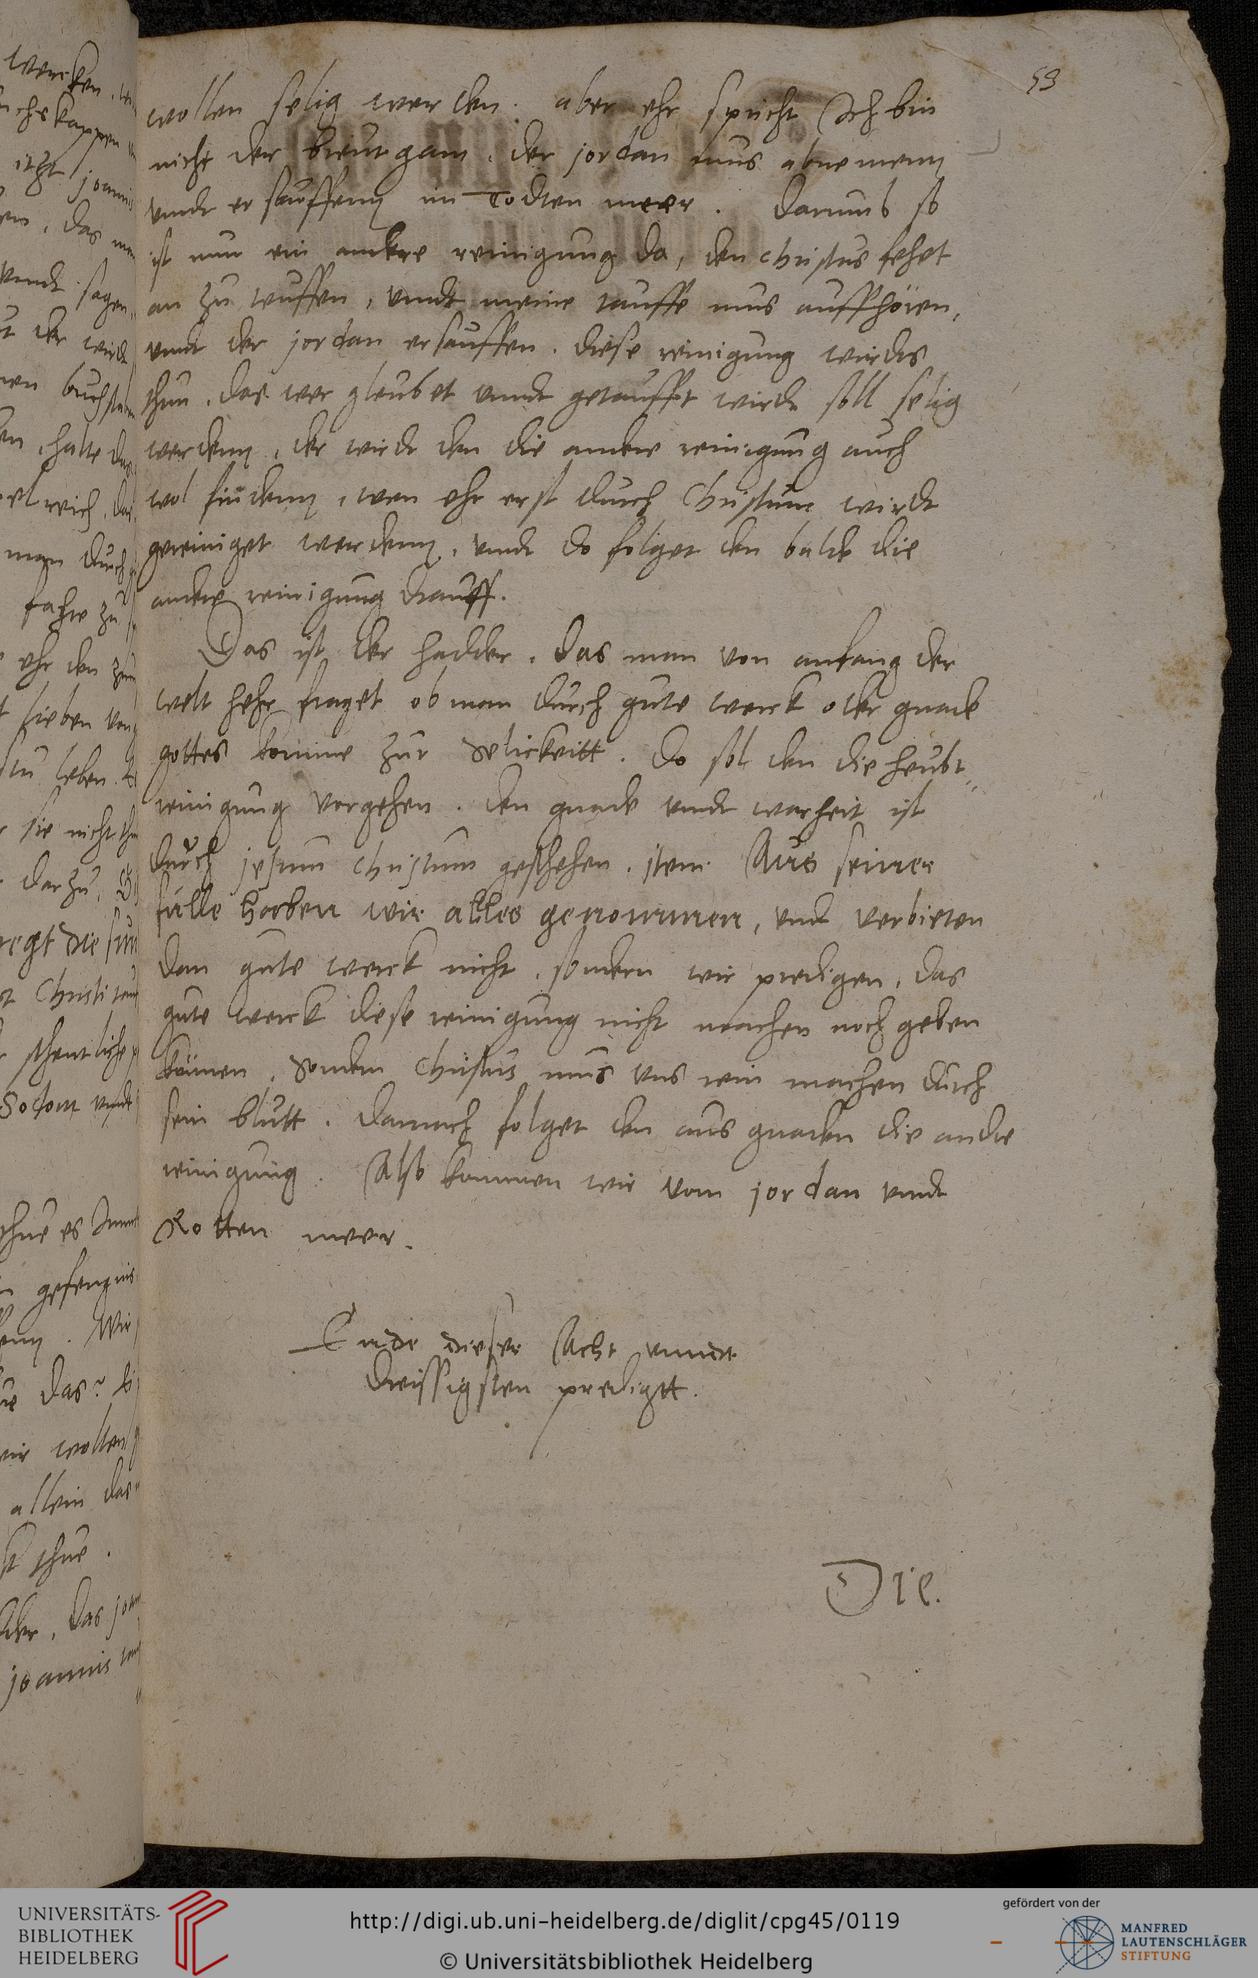 53
wollen selig werden. aber ehr spricht Ich bin
nicht der breutgam, der jordan mus abnemenn
vndt ersauffenn im Todten meer. Darumb so
ist nun ein andere reinigung da, den christus fehet
an zu teuffen, vndt meine tauffe mus auffhören,
vnd der jordan ersauffen. diese reinigung wirds
thun, das wer gleubet vnndt getaufft wirdt soll selig
werdenn, der wirdt den die andere reinigung auch
wol findenn, wen ehr erst durch Christum wirdt
gereiniget werdenn, vndt do folget den balde die
andere reinigung drauff.
Das ist der hadder, das man von anfang der
welt hehr fraget ob man durch gute werck oder gnade
gottes komme zur Selickeitt. Do sol den die heubt
reinigung vorgehen. den gnade vndt warheit ist
durch jesum christum geschehen. item Aus seiner
fulle haben wir alles genommen, vndt verbieten
dan gute werck nicht, sondern wir predigen, das
gute werck diese reinigung nicht machen noch geben
können, sondern Christus mus vns rein machen durch
sein blutt. darnach folget den aus gnaden die andre
reinigung. Also kommen wir vom jordan vndt
Rotten meer.
Ende dieser Acht vnndt
dreissigsten predigtt.
Die.
UNIVERSITÄTS-
BIBLIOTHEK
HEIDELBERG
http://digi.ub.uni-heidelberg.de/diglit/cpg45/0119
© Universitätsbibliothek Heidelberg
gefördert von der
MANFRED
LAUTENSCHLÄGER
STIFTUNG